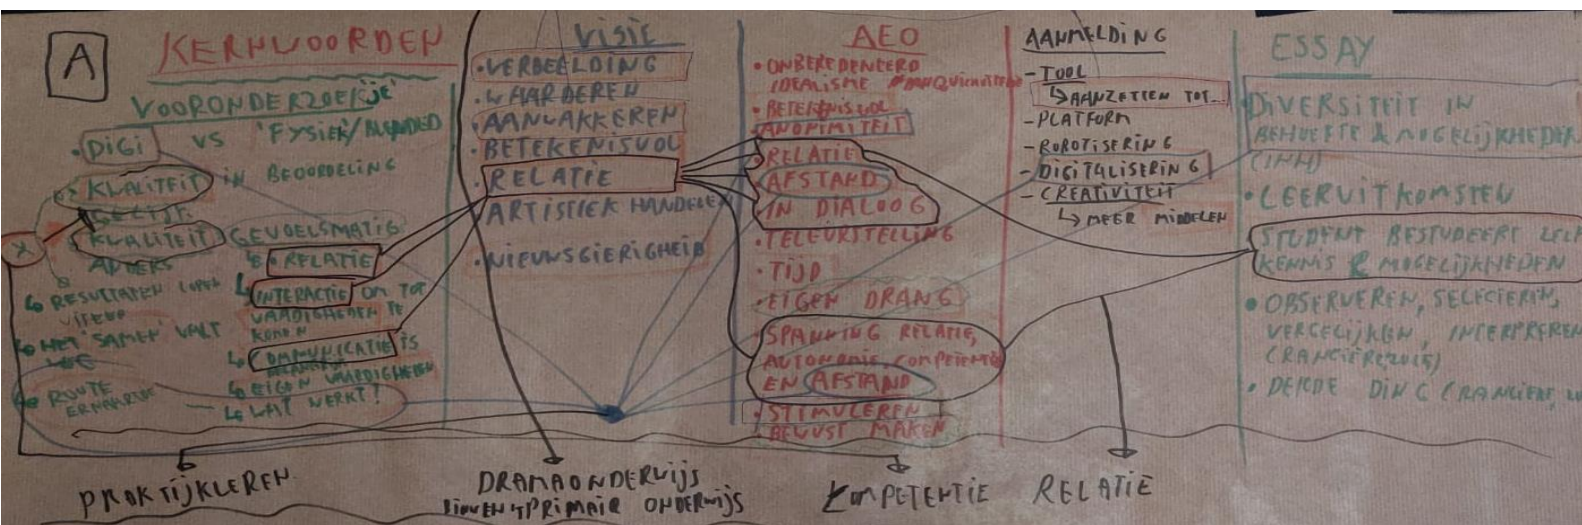 A
KERNWOORDEN
VOORONDERZOEKJE
• DIGI VS 'FYSIEK/BLENDED
KWALITEIT IN BEOORDELING
GELIJK
KWALITEIT
ANDERS
&
↳ RESULTATEN LOPEN
UITEEN
↳ HET 'SAMEN' VALT
WEG
↳ ROUTE
ERNAARTOE
GEVOELSMATIG:
• RELATIE
↳ INTERACTIE OM TOT
VAARDIGHEDEN TE
KOMEN
↳ COMMUNICATIE IS
BELANGRIJK
↳ EIGEN VAARDIGHEDEN
↳ WAT WERKT!
VISIE
• VERBEELDING
• WAARDEREN
• AANWAKKEREN
• BETEKENISVOL
• RELATIE
• ARTISTIEK HANDELEN
• NIEUWSGIERIGHEID
AEO
• ONBEREDENEERD
IDEALISME
• BETEKENISVOL
ANONIMITEIT
• RELATIE
AFSTAND
IN DIALOOG
• TELEURSTELLING
• TIJD
• EIGEN DRANG
• SPANNING RELATIE,
AUTONOMIE, COMPETENTIE
EN AFSTAND
• STIMULEREN
BEWUST MAKEN
AANMELDING
- TOOL
↳ AANZETTEN TOT...
- PLATFORM
- ROBOTISERING
- DIGITALISERING
- CREATIVITEIT
↳ MEER MIDDELEN
ESSAY
• DIVERSITEIT IN
BEHOEFTE & MOGELIJKHEDEN
(INH)
• LEERUITKOMSTEN
STUDENT BESTUDEERT ZELF
KENNIS & MOGELIJKHEDEN
• OBSERVEREN, SELECTEREN,
VERGELIJKEN, INTERPREREN
(RANCIERE, 2015)
• DERDE DING (RANCIERE,
PRAKTIJKLEREN
DRAMAONDERWIJS
BINNEN 'T PRIMAIR ONDERWIJS
COMPETENTIE
RELATIE